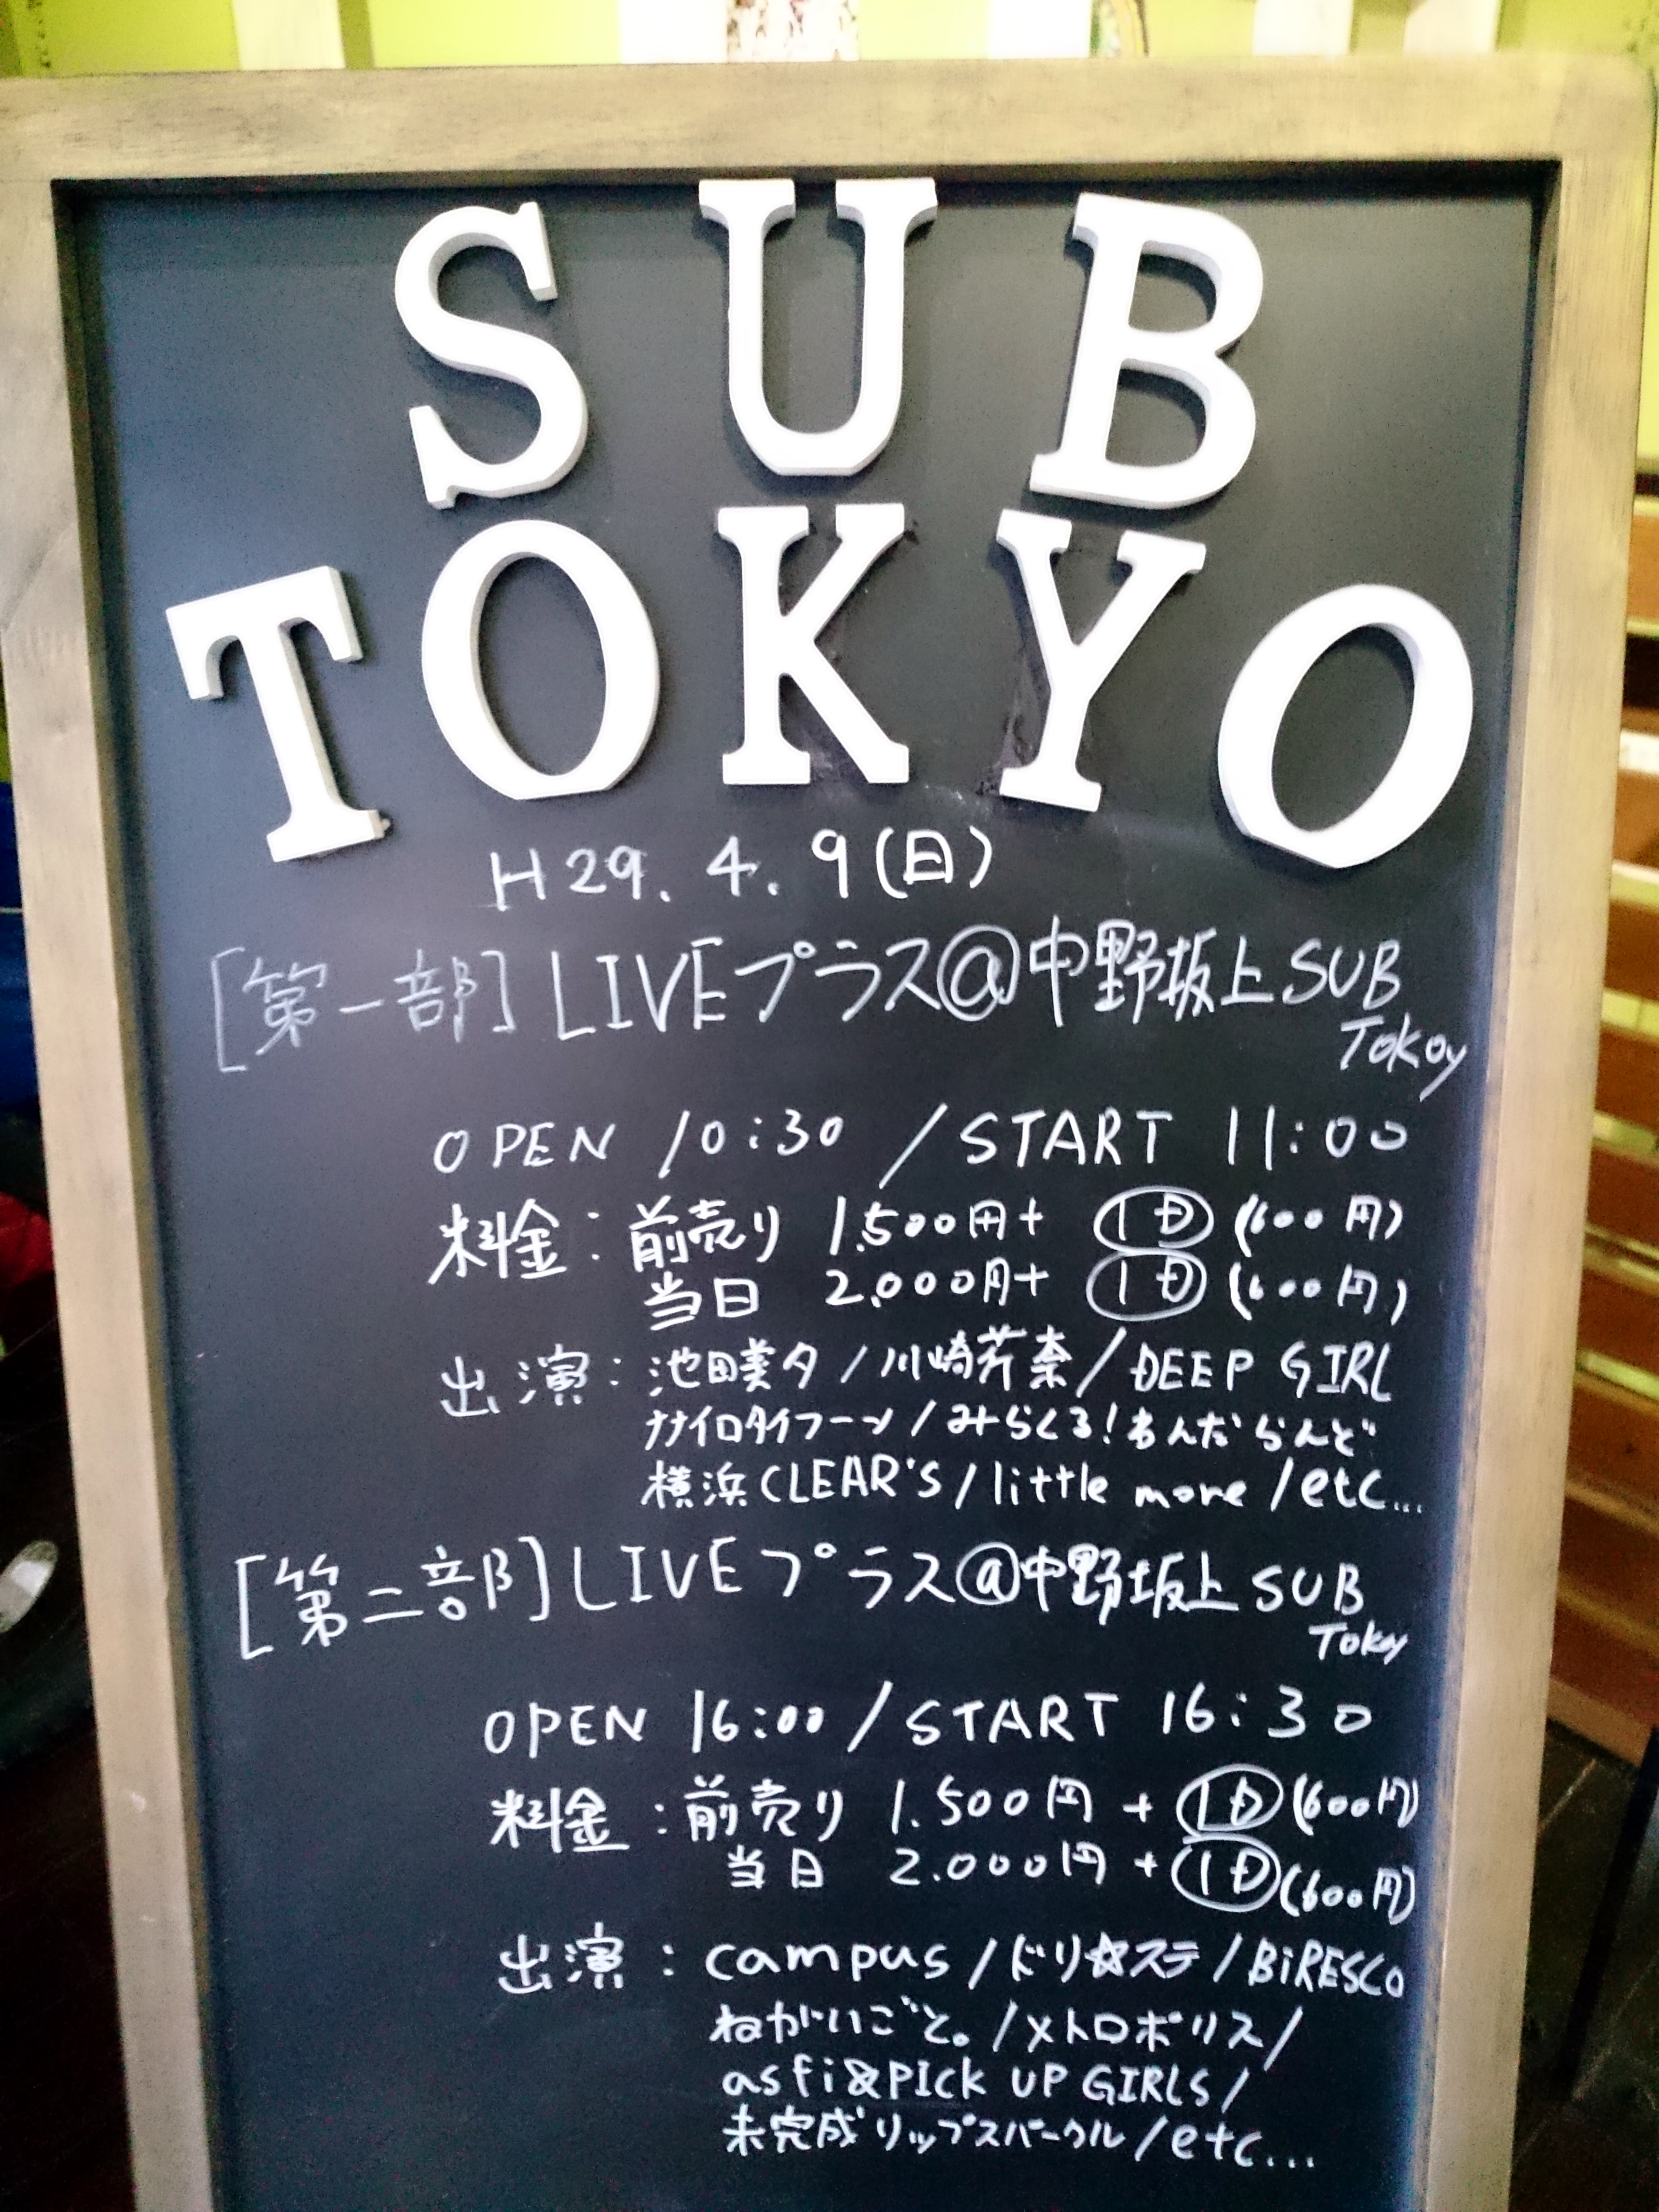 SUB
TOKYO
H29.4.9(日)
[第一部]LIVEプラス@中野坂上SUB
Tokoy
OPEN 10:30 /START 11:00
料金:前売り 1.500円+ 1D (600円)
当日 2.000円+ 1D (600円)
出演:池田美夕/川崎芹奈/DEEP GIRL
ナナイロタイフーン/みらくる!わんだらんど
横浜CLEAR'S/little more/etc...
[第二部]LIVEプラス@中野坂上SUB
Tokoy
OPEN 16:00/START 16:30
料金:前売り 1.500円 + 1D(600円)
当日 2.000円 + 1D(600円)
出演:campus/ドリ☆ステ/BiRESCO
ねがいごと。/メトロポリス/
asfi&PICK UP GIRLS/
未完成リップスパークル/etc...